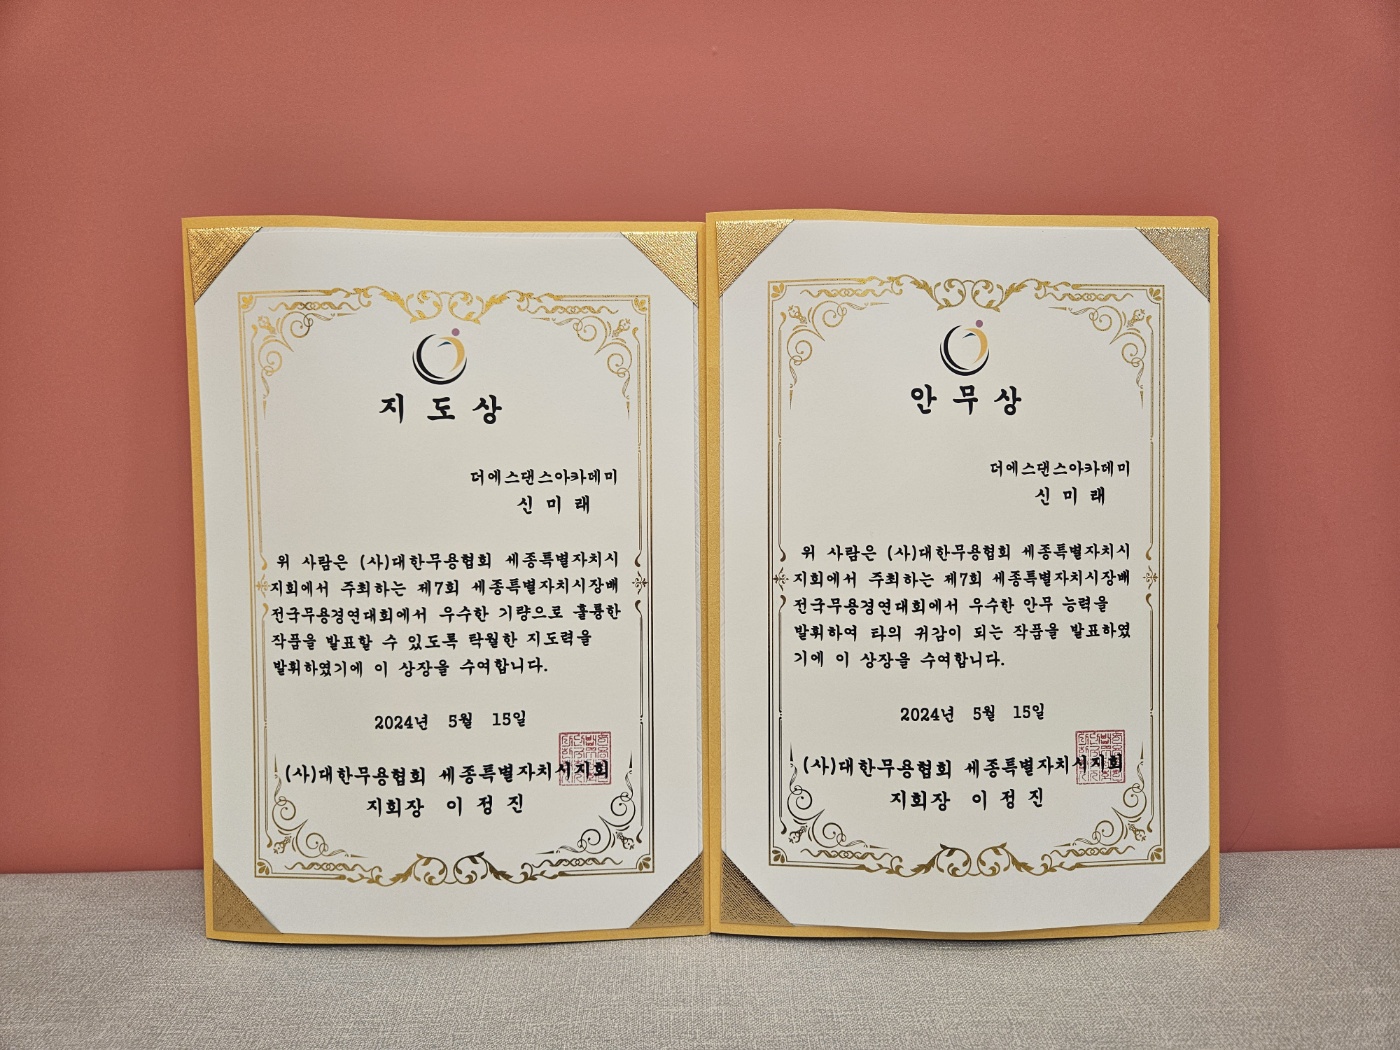 지 도 상
더에스댄스아카데미
신 미 래
위 사람은 (사)대한무용협회 세종특별자치시
지회에서 주최하는 제7회 세종특별자치시장배
전국무용경연대회에서 우수한 기량으로 훌륭한
작품을 발표할 수 있도록 탁월한 지도력을
발휘하였기에 이 상장을 수여합니다.
2024년 5월 15일
(사)대한무용협회 세종특별자치시지회
지회장 이 정 진
안 무 상
더에스댄스아카데미
신 미 래
위 사람은 (사)대한무용협회 세종특별자치시
지회에서 주최하는 제7회 세종특별자치시장배
전국무용경연대회에서 우수한 안무 능력을
발휘하여 타의 귀감이 되는 작품을 발표하였
기에 이 상장을 수여합니다.
2024년 5월 15일
(사)대한무용협회 세종특별자치시지회
지회장 이 정 진